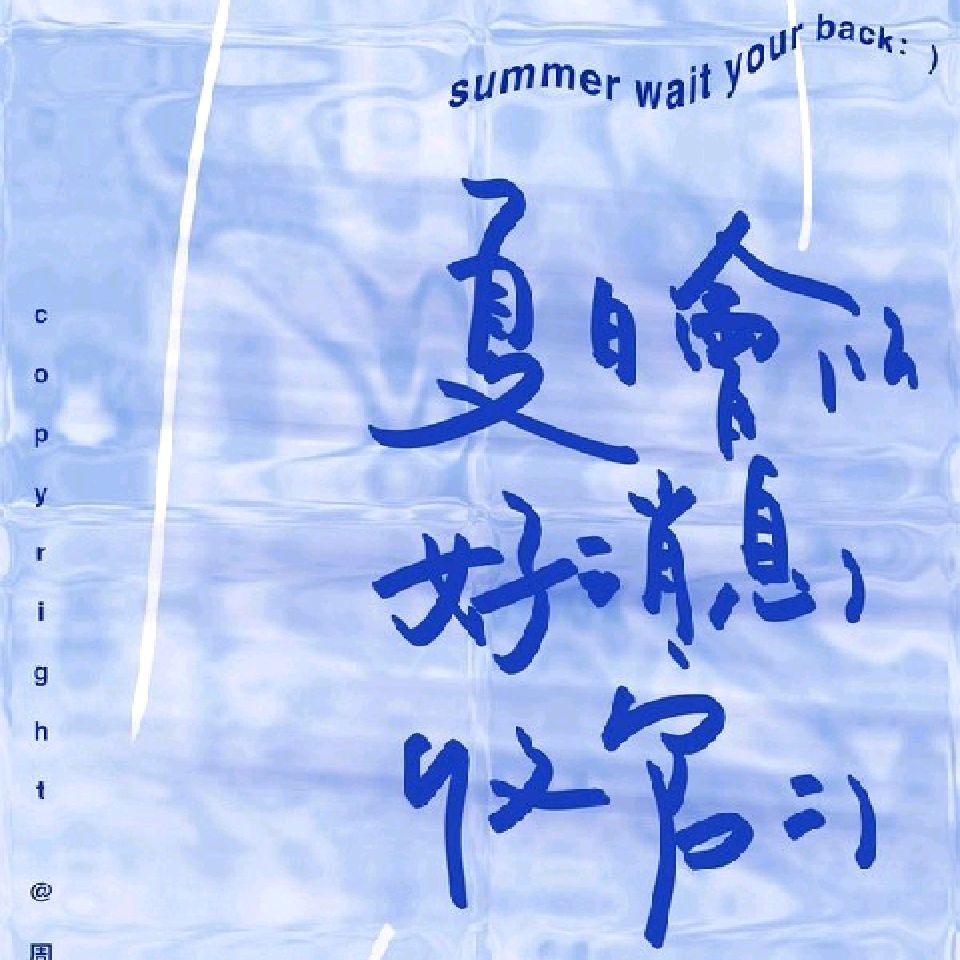 summer wait your back: )
夏日會以
好消息
收官
:)
copyright @周